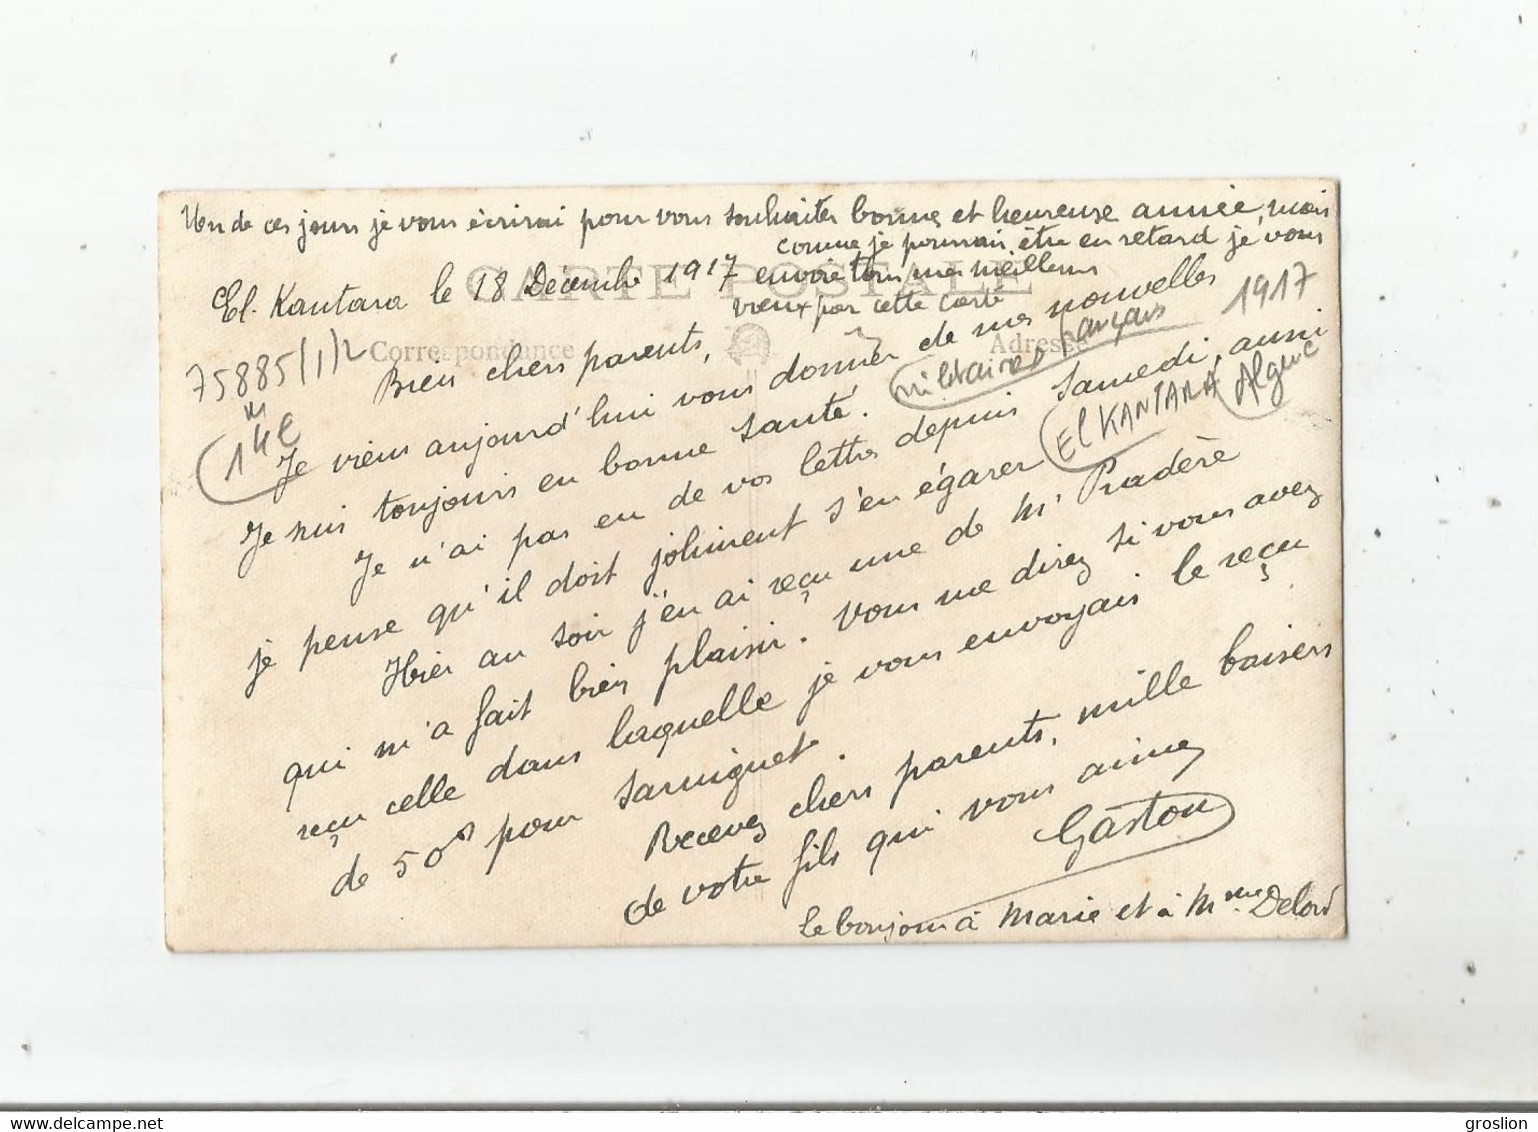 Un de ces jours je vous écrirai pour vous souhaiter bonne et heureuse année, mais
comme je pourrais être en retard je vous
envoie tous mes meilleurs
vœux par cette carte
CARTE POSTALE
El. Kantara le 18 Décembre 1917
Correspondance
Adresse
75885(1)2
14e
militaires français
1917
El KANTARA Algerie
Bien chers parents,
Je viens aujourd'hui vous donner de mes nouvelles
Je suis toujours en bonne santé.
Je n'ai pas eu de vos lettres depuis Samedi, aussi
je pense qu'il doit joliment s'en égarer
Hier au soir j'en ai reçu une de Mr Pradère
qui m'a fait bien plaisir. Vous me direz si vous avez
reçu celle dans laquelle je vous envoyais le reçu
de 50f pour Sarniguet.
Recevez chers parents, mille baisers
de votre fils qui vous aime
Gaston
Le bonjour à Marie et à Mme Delord
groslion